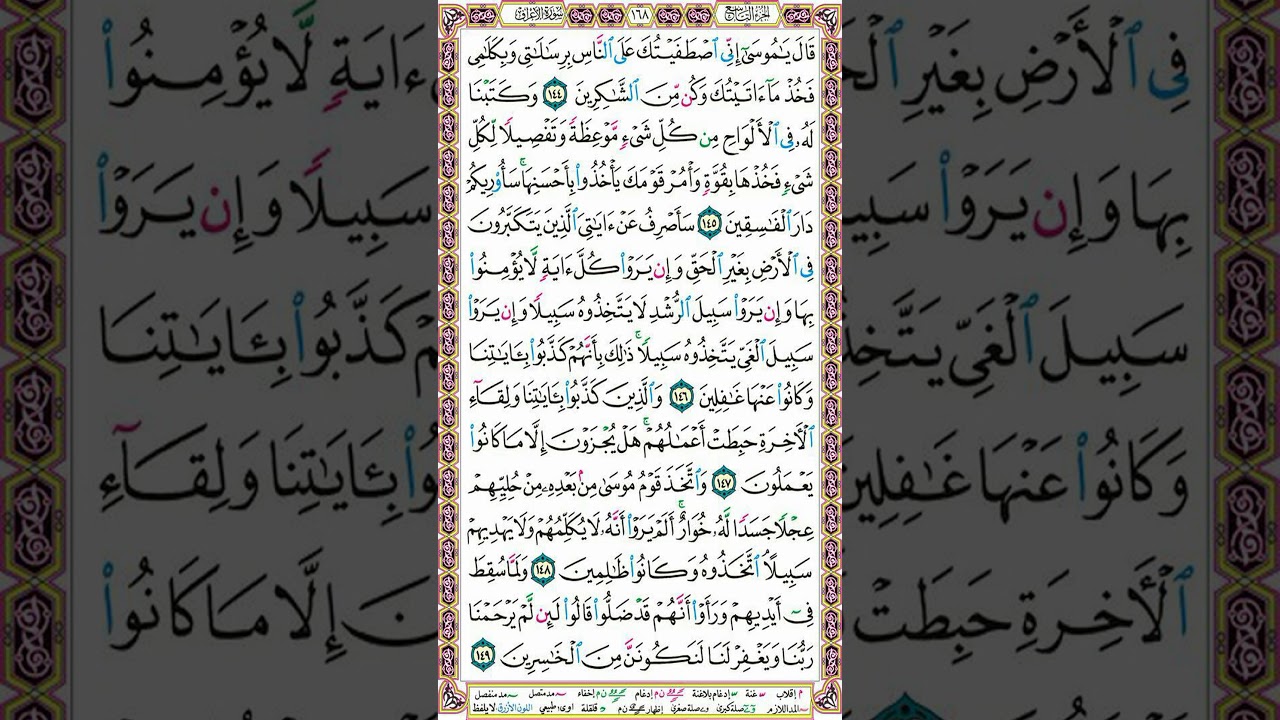 الجزء التاسع ١٦٨ سورة الأعراف
قَالَ يَـٰمُوسَىٰٓ إِنِّى ٱصْطَفَيْتُكَ عَلَى ٱلنَّاسِ بِرِسَـٰلَـٰتِى وَبِكَلَـٰمِى
فَخُذْ مَآ ءَاتَيْتُكَ وَكُن مِّنَ ٱلشَّـٰكِرِينَ ١٤٤ وَكَتَبْنَا
لَهُۥ فِى ٱلْأَلْوَاحِ مِن كُلِّ شَىْءٍ مَّوْعِظَةً وَتَفْصِيلًا لِّكُلِّ
شَىْءٍ فَخُذْهَا بِقُوَّةٍ وَأْمُرْ قَوْمَكَ يَأْخُذُوا۟ بِأَحْسَنِهَا ۚ سَأُو۟رِيكُمْ
دَارَ ٱلْفَـٰسِقِينَ ١٤٥ سَأَصْرِفُ عَنْ ءَايَـٰتِىَ ٱلَّذِينَ يَتَكَبَّرُونَ
فِى ٱلْأَرْضِ بِغَيْرِ ٱلْحَقِّ وَإِن يَرَوْا۟ كُلَّ ءَايَةٍ لَّا يُؤْمِنُوا۟
بِهَا وَإِن يَرَوْا۟ سَبِيلَ ٱلرُّشْدِ لَا يَتَّخِذُوهُ سَبِيلًا وَإِن يَرَوْا۟
سَبِيلَ ٱلْغَىِّ يَتَّخِذُوهُ سَبِيلًا ۚ ذَٰلِكَ بِأَنَّهُمْ كَذَّبُوا۟ بِـَٔايَـٰتِنَا
وَكَانُوا۟ عَنْهَا غَـٰفِلِينَ ١٤٦ وَٱلَّذِينَ كَذَّبُوا۟ بِـَٔايَـٰتِنَا وَلِقَآءِ
ٱلْـَٔاخِرَةِ حَبِطَتْ أَعْمَـٰلُهُمْ ۚ هَلْ يُجْزَوْنَ إِلَّا مَا كَانُوا۟
يَعْمَلُونَ ١٤٧ وَٱتَّخَذَ قَوْمُ مُوسَىٰ مِنۢ بَعْدِهِۦ مِنْ حُلِيِّهِمْ
عِجْلًا جَسَدًا لَّهُۥ خُوَارٌ ۚ أَلَمْ يَرَوْا۟ أَنَّهُۥ لَا يُكَلِّمُهُمْ وَلَا يَهْدِيهِمْ
سَبِيلًا ٱتَّخَذُوهُ وَكَانُوا۟ ظَـٰلِمِينَ ١٤٨ وَلَمَّا سُقِطَ
فِىٓ أَيْدِيهِمْ وَرَأَوْا۟ أَنَّهُمْ قَدْ ضَلُّوا۟ قَالُوا۟ لَئِن لَّمْ يَرْحَمْنَا
رَبُّنَا وَيَغْفِرْ لَنَا لَنَكُونَنَّ مِنَ ٱلْخَـٰسِرِينَ ١٤٩
م إقلاب غنة إدغام بلاغنة ن م إدغام ن م إخفاء مد متصل مد منفصل
المد اللازم صلة كبرى صلة صغرى إظهار ن م قلقلة اوى: طبيعي اللون الأزرق: لا يلفظ